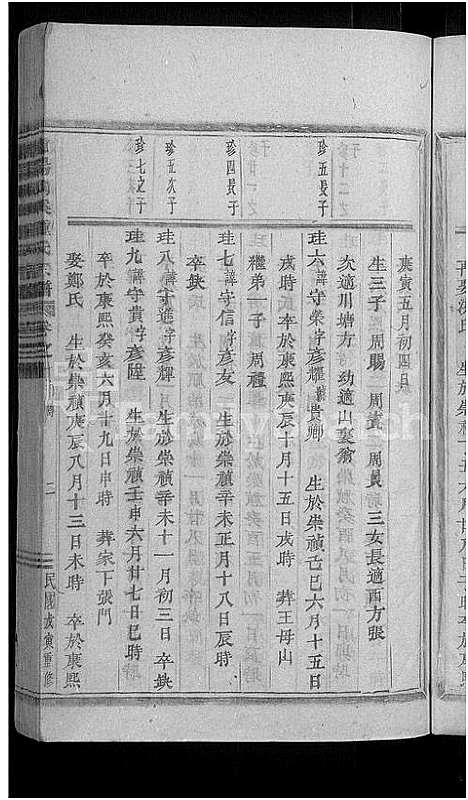 庚寅五月初四日
生三子 周賜 周嵩 周員 三女長適西方張
次適川塘方 幼適山裏翁
珍五長子
珪六 諱守榮字彥耀號貴卿 生於崇禎己巳六月十五日
戌時 卒於康熙庚辰十月十五日戌時 葬王母山
繼弟一子 周禮
珍四長子
珪七 諱守信字彥友 生於崇禎辛未正月十八日辰時
卒缺
珍五次子
珪八 諱守進字彥輝 生於崇禎辛未十一月初三日 卒缺
珍七之子
珪九 諱守貴字彥陞 生於崇禎壬申六月廿七日巳時
卒於康熙癸亥六月廿九日申時 葬家下張門
娶鄭氏 生於崇禎庚辰八月十三日未時 卒於康熙
二
民國戊寅重修